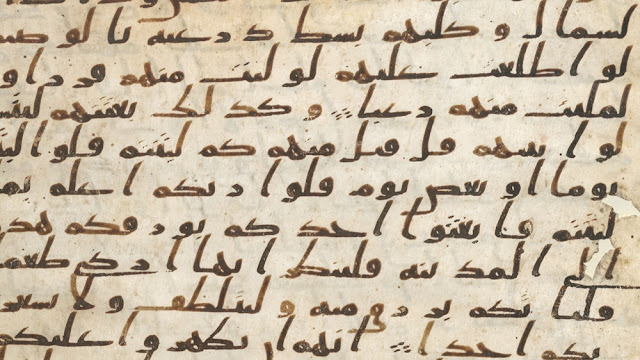 لشمال وكلبهم بسط ذرعيه بالوصـ
لو اطلعت عليهم لوليت منهم فررا و
لملئت منهم رعبا وكذلك بعثنهم ليتسـ
لوا بينهم قل قئل منهم كم لبثتم قلوا لبثـ
يوما او بعض يوم قلوا ربكم اعلم بما
لبثتم فابعثوا احدكم بورقكم هذه
الى المدينه فلينظر ايها ازكى طعما
فلياتكم برزق منه وليتلطف ولا يشعر
بكم احدا انهم ان يظهروا عليكم